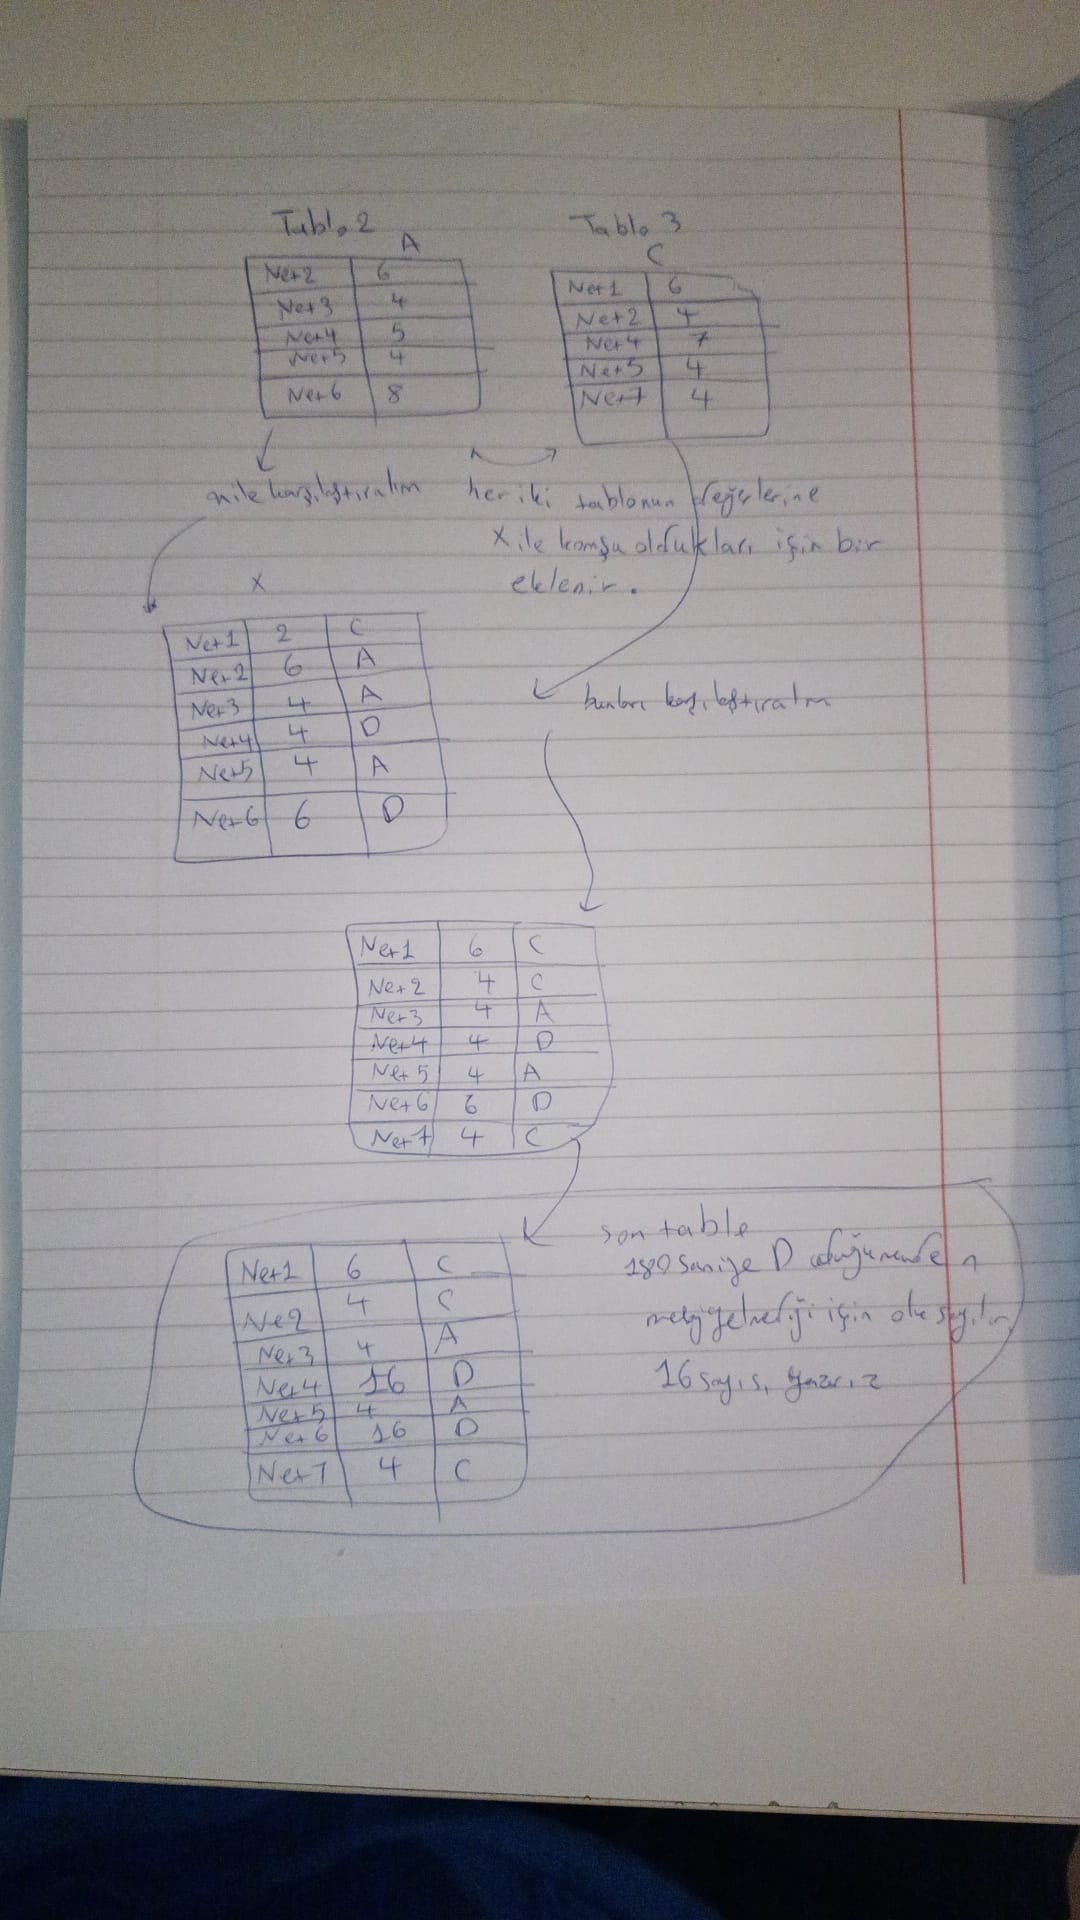 Tablo 2
A
Net2 6
Net3 4
Net4 5
Net5 4
Net6 8
Tablo 3
C
Net1 6
Net2 4
Net4 7
Net5 4
Net7 4
ile karşılaştıralım
her iki tablonun değerlerine
X ile komşu oldukları için bir
eklenir.
X
Net1 2 C
Net2 6 A
Net3 4 A
Net4 4 D
Net5 4 A
Net6 6 D
bunları karşılaştıralım
Net1 6 C
Net2 4 C
Net3 4 A
Net4 4 D
Net5 4 A
Net6 6 D
Net7 4 C
son table
180 saniye D
için
16 sayısı yazarız
Net1 6 C
Net2 4 C
Net3 4 A
Net4 16 D
Net5 4 A
Net6 16 D
Net7 4 C